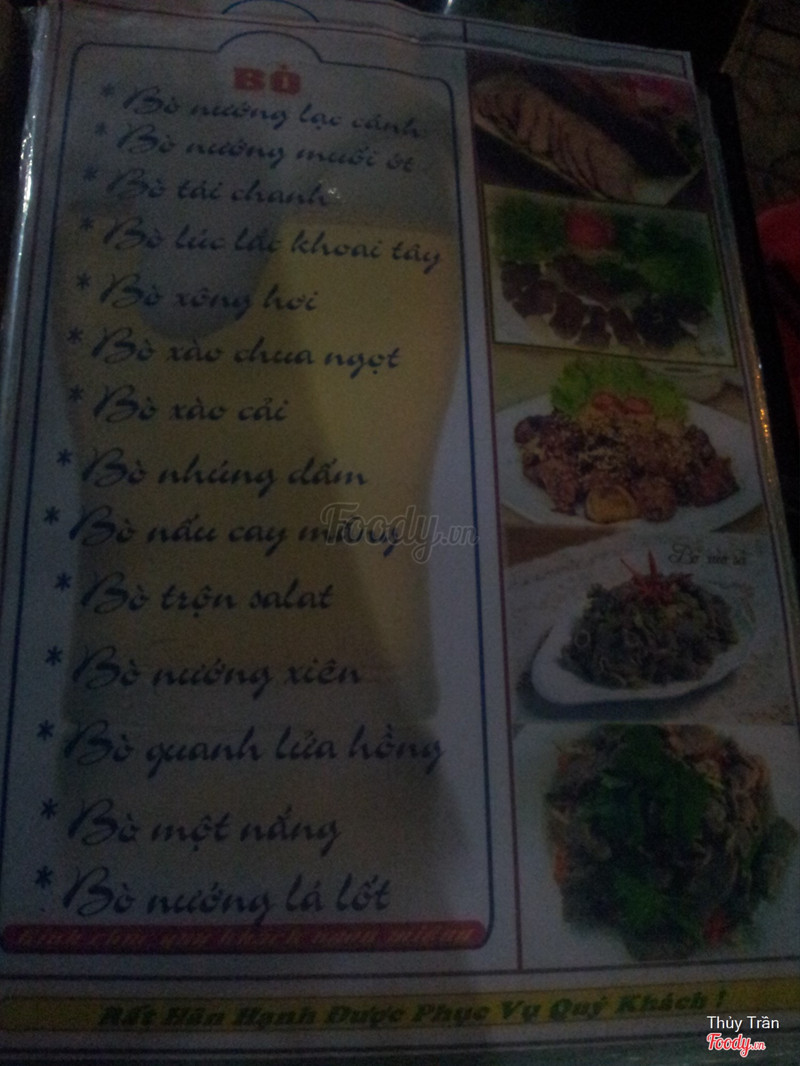 BÒ
* Bò nướng lạc cảnh
* Bò nướng muối ớt
* Bò tái chanh
* Bò lúc lắc khoai tây
* Bò xông hơi
* Bò xào chua ngọt
* Bò xào cải
* Bò nhúng dấm
* Bò nấu cay măng
* Bò trộn salat
* Bò nướng xiên
* Bò quanh lửa hồng
* Bò một nắng
* Bò nướng lá lốt
Kính chúc quý khách ngon miệng
Rất Hân Hạnh Được Phục Vụ Quý Khách !
Foody.vn
Thủy Trần
Foody.vn